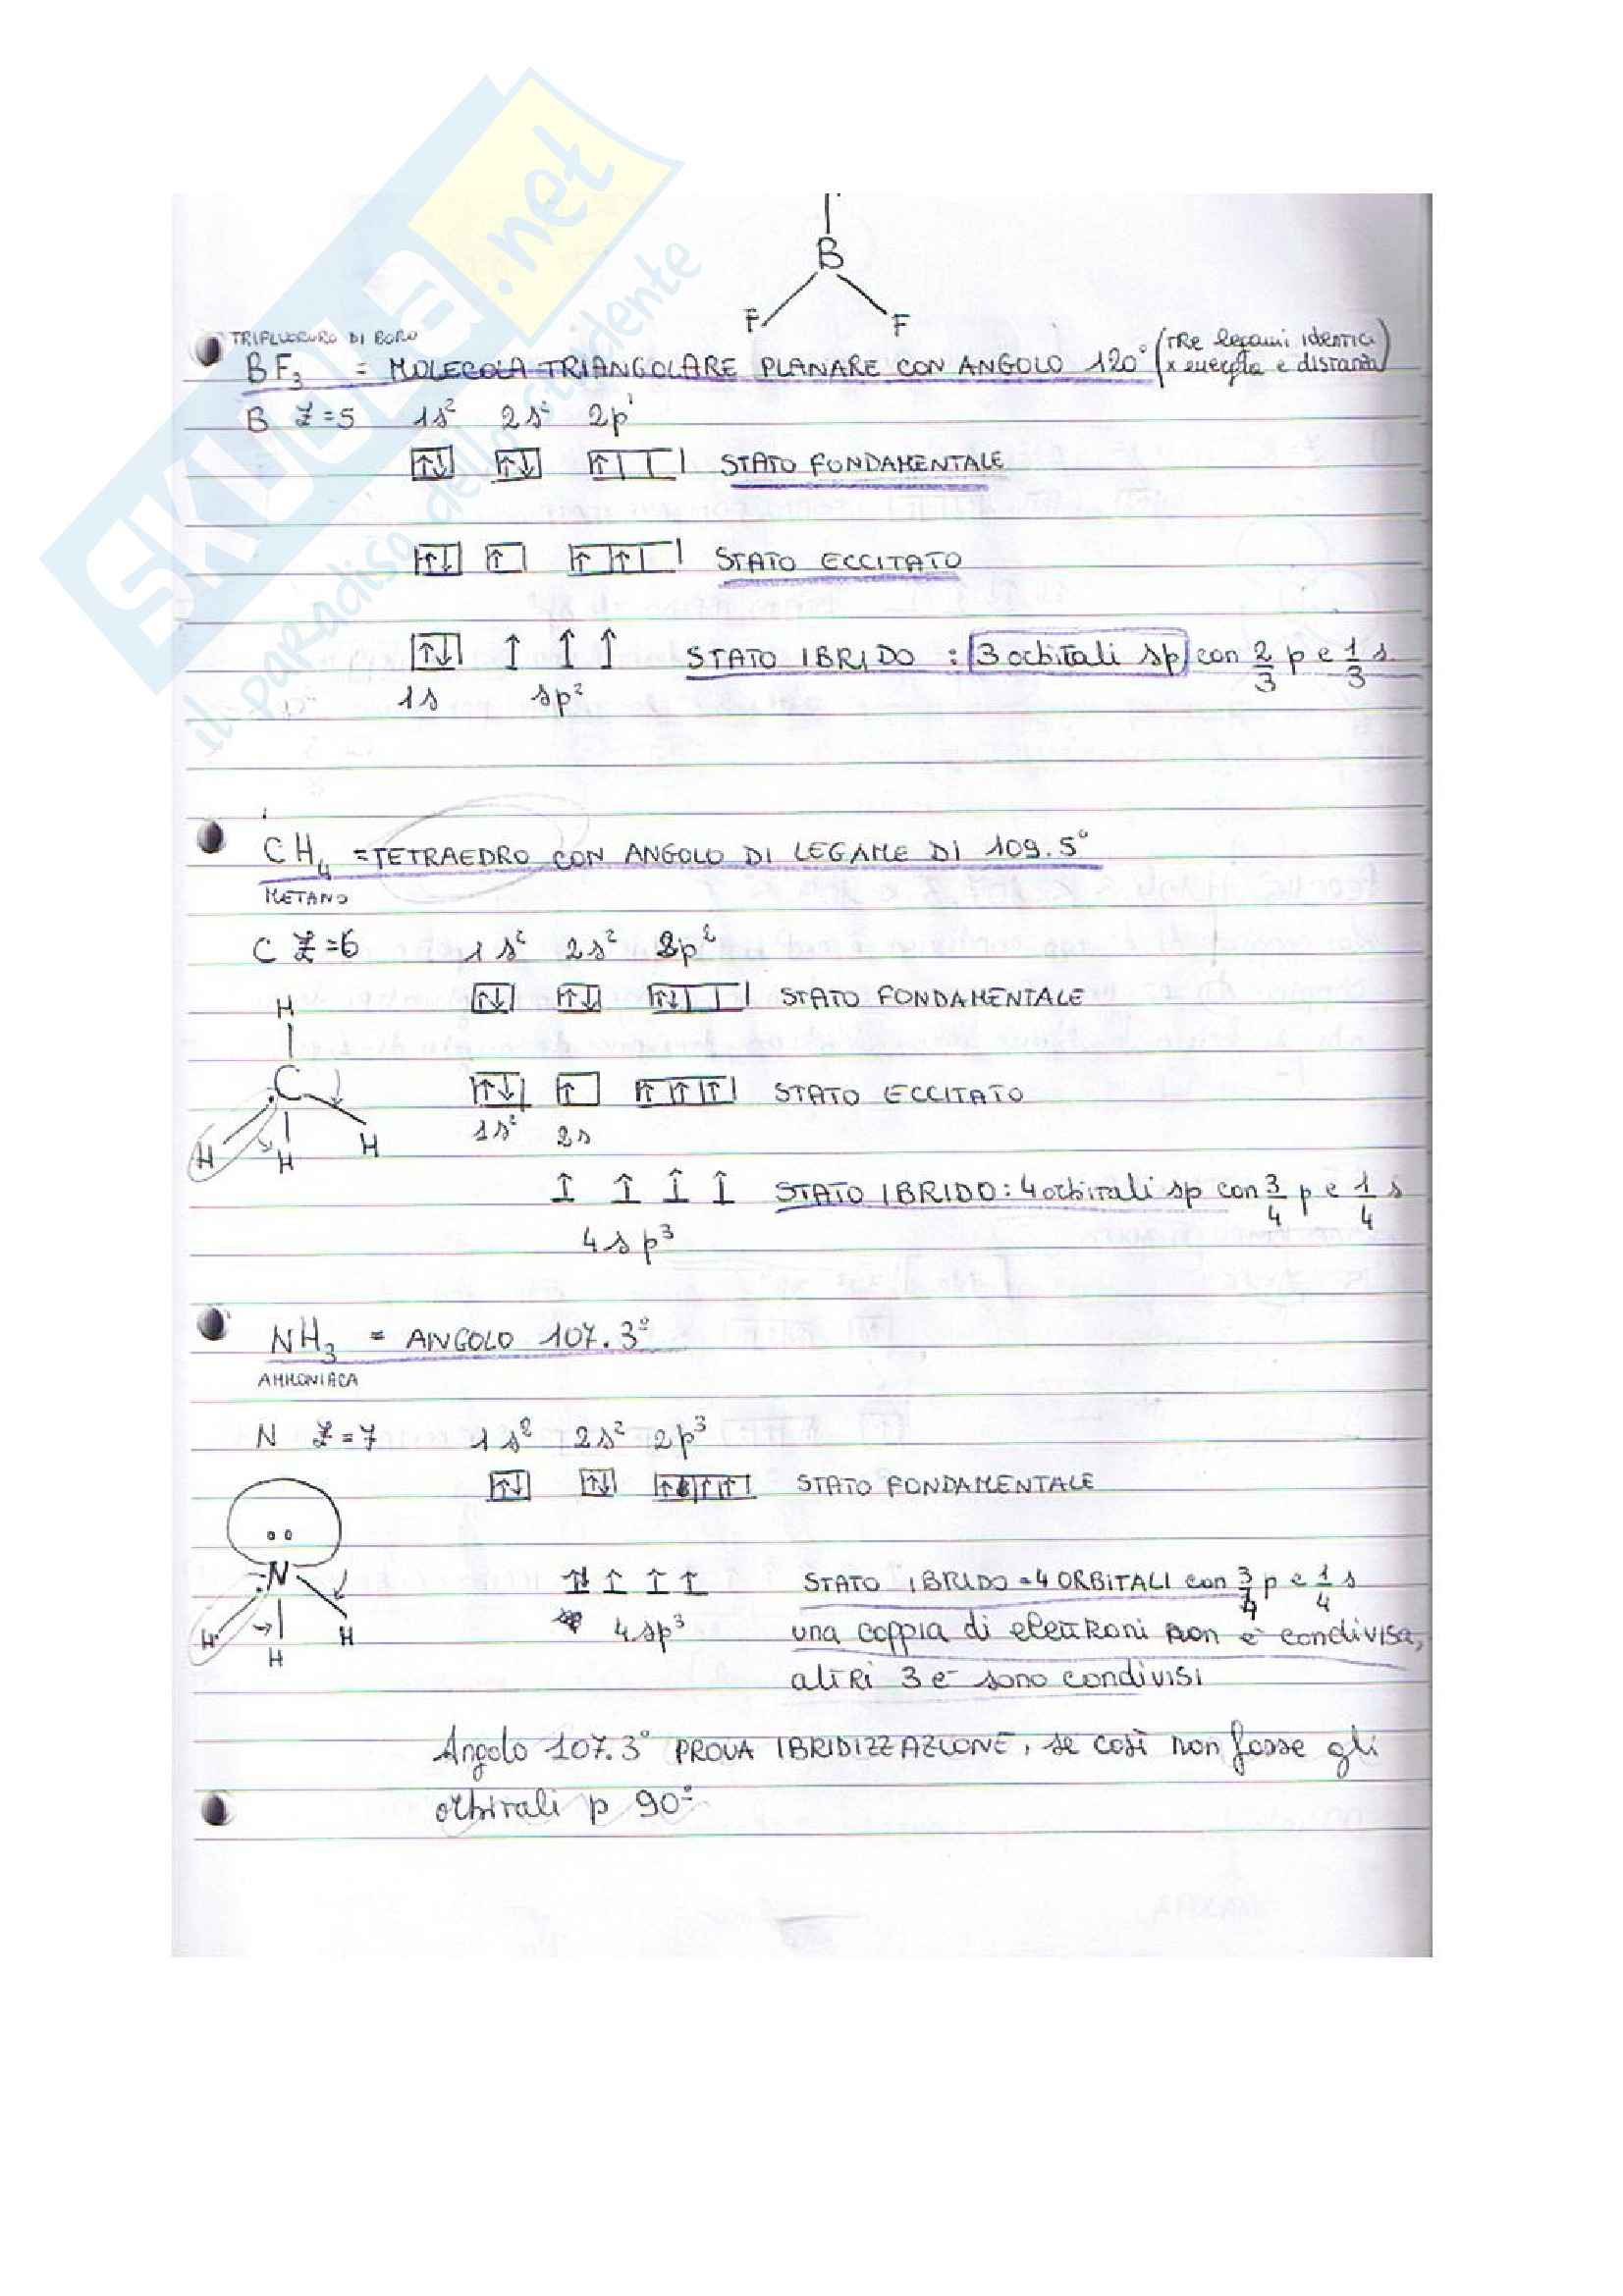 SKUOLA.net
il paradiso dello studente
B
F F
TRIFLUORURO DI BORO
BF₃ = MOLECOLA TRIANGOLARE PLANARE CON ANGOLO 120° (TRE legami identici x energia e distanza)
B Z=5 1s² 2s² 2p¹
↑↓ ↑↓ ↑ STATO FONDAMENTALE
↑↓ ↑ ↑ ↑ STATO ECCITATO
↑↓ ↑ ↑ ↑ STATO IBRIDO : 3 orbitali sp con 2/3 p e 1/3 s
1s sp²
CH₄ = TETRAEDRO CON ANGOLO DI LEGAME DI 109.5°
METANO
C Z=6 1s² 2s² 2p²
H ↑↓ ↑↓ ↑↓ STATO FONDAMENTALE
C ↑↓ ↑ ↑ ↑ ↑ STATO ECCITATO
1s² 2s
H H H
↑ ↑ ↑ ↑ STATO IBRIDO: 4 orbitali sp con 3/4 p e 1/4 s
4sp³
NH₃ = ANGOLO 107.3°
AMMONIACA
N Z=7 1s² 2s² 2p³
↑↓ ↑↓ ↑ ↑ ↑ STATO FONDAMENTALE
N ↑↓ ↑ ↑ ↑ STATO IBRIDO = 4 ORBITALI con 3/4 p e 1/4 s
H H H 4sp³ una coppia di elettroni non è condivisa,
altri 3 e⁻ sono condivisi
Angolo 107.3° PROVA IBRIDIZZAZIONE, se così non fosse gli
orbitali p 90°